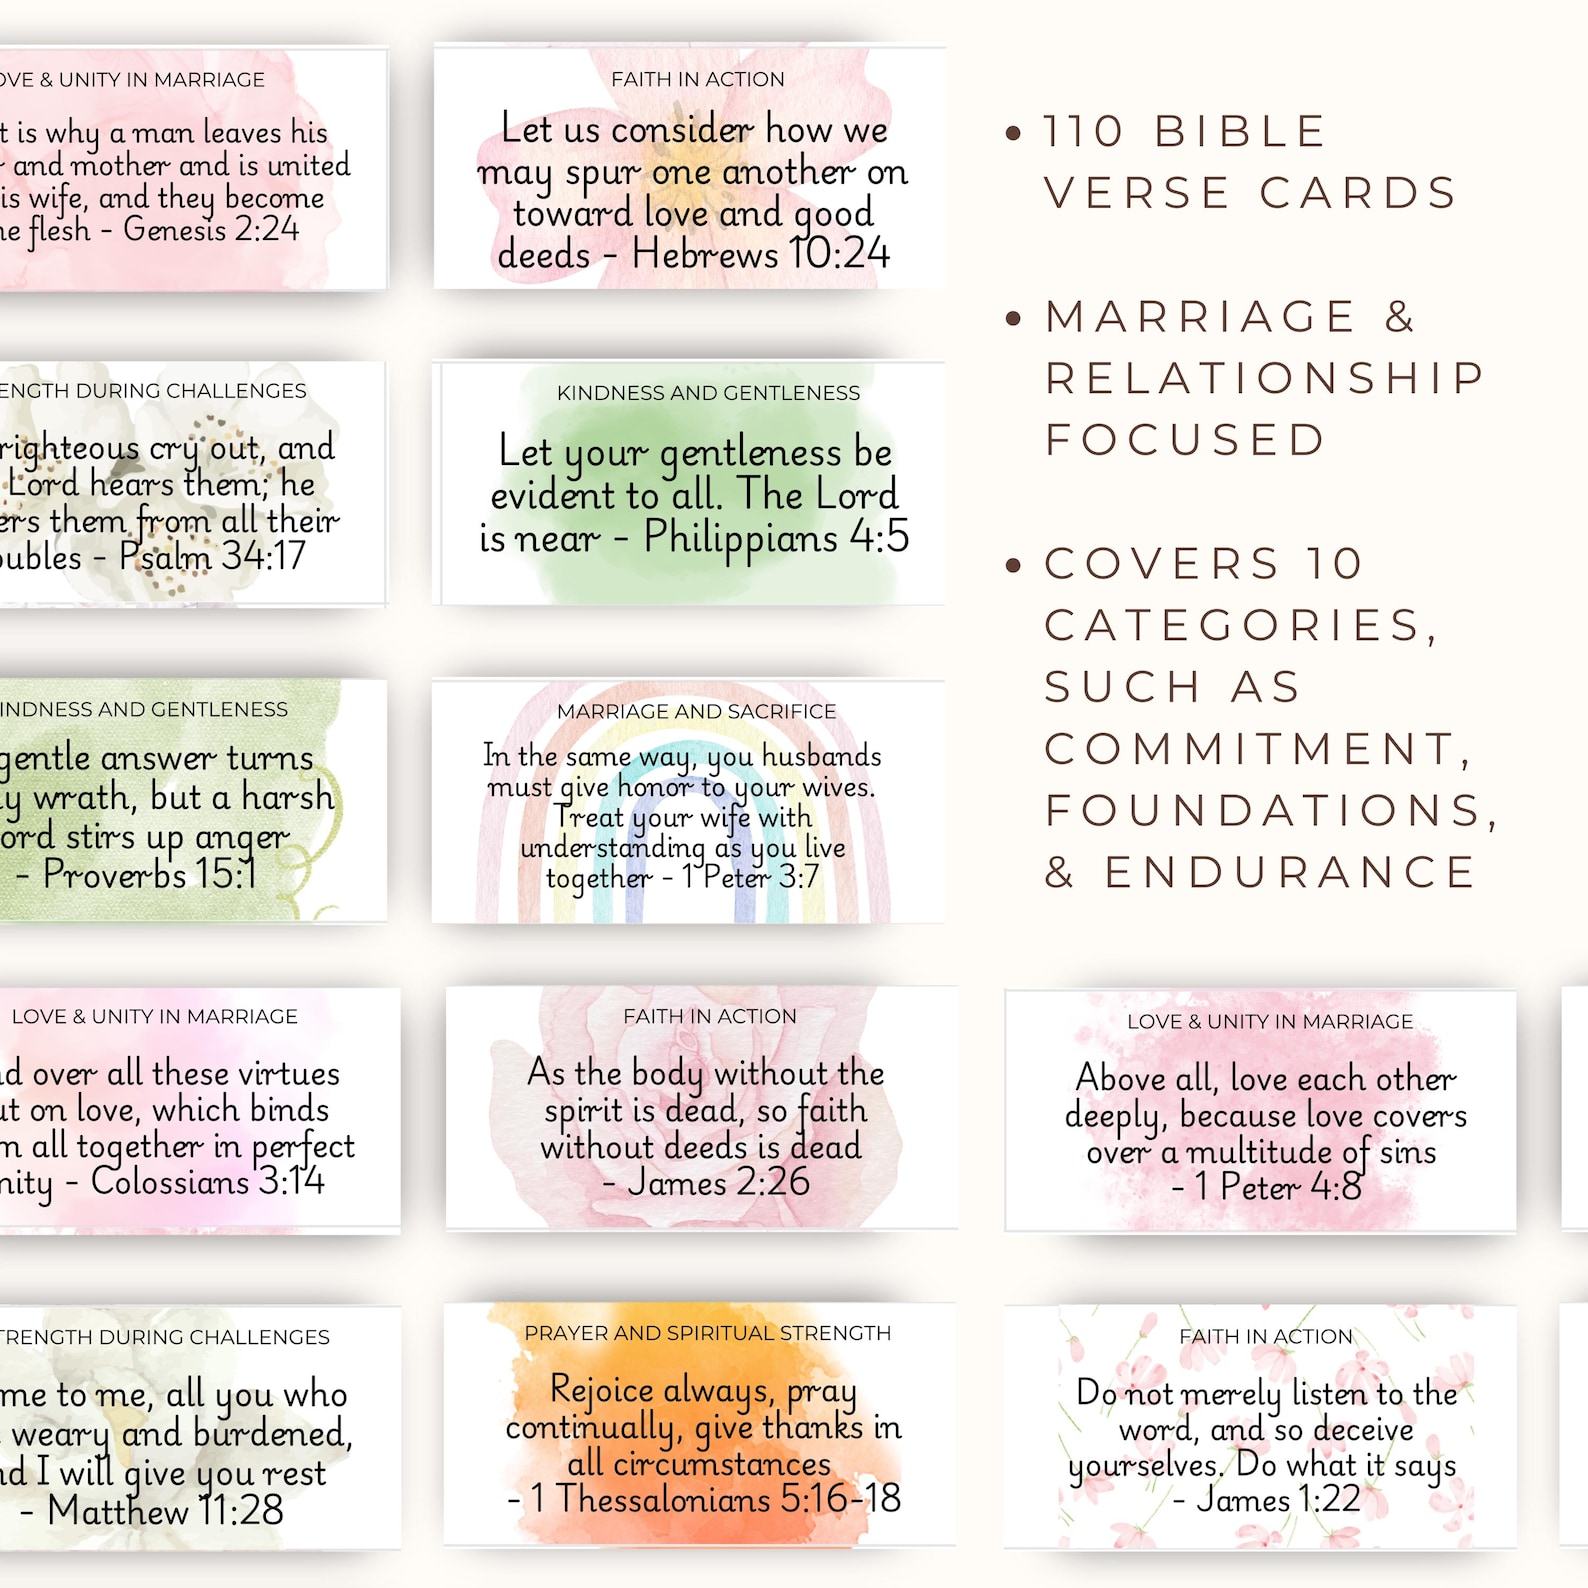 OVE & UNITY IN MARRIAGE
t is why a man leaves his
and mother and is united
is wife, and they become
ne flesh - Genesis 2:24
FAITH IN ACTION
Let us consider how we
may spur one another on
toward love and good
deeds - Hebrews 10:24
• 110 BIBLE
VERSE CARDS
• MARRIAGE &
RELATIONSHIP
FOCUSED
• COVERS 10
CATEGORIES,
SUCH AS
COMMITMENT,
FOUNDATIONS,
& ENDURANCE
ENGTH DURING CHALLENGES
righteous cry out, and
Lord hears them; he
ers them from all their
oubles - Psalm 34:17
KINDNESS AND GENTLENESS
Let your gentleness be
evident to all. The Lord
is near - Philippians 4:5
INDNESS AND GENTLENESS
gentle answer turns
y wrath, but a harsh
ord stirs up anger
- Proverbs 15:1
MARRIAGE AND SACRIFICE
In the same way, you husbands
must give honor to your wives.
Treat your wife with
understanding as you live
together - 1 Peter 3:7
LOVE & UNITY IN MARRIAGE
d over all these virtues
ut on love, which binds
m all together in perfect
nity - Colossians 3:14
FAITH IN ACTION
As the body without the
spirit is dead, so faith
without deeds is dead
- James 2:26
LOVE & UNITY IN MARRIAGE
Above all, love each other
deeply, because love covers
over a multitude of sins
- 1 Peter 4:8
TRENGTH DURING CHALLENGES
me to me, all you who
weary and burdened,
nd I will give you rest
- Matthew 11:28
PRAYER AND SPIRITUAL STRENGTH
Rejoice always, pray
continually, give thanks in
all circumstances
- 1 Thessalonians 5:16-18
FAITH IN ACTION
Do not merely listen to the
word, and so deceive
yourselves. Do what it says
- James 1:22